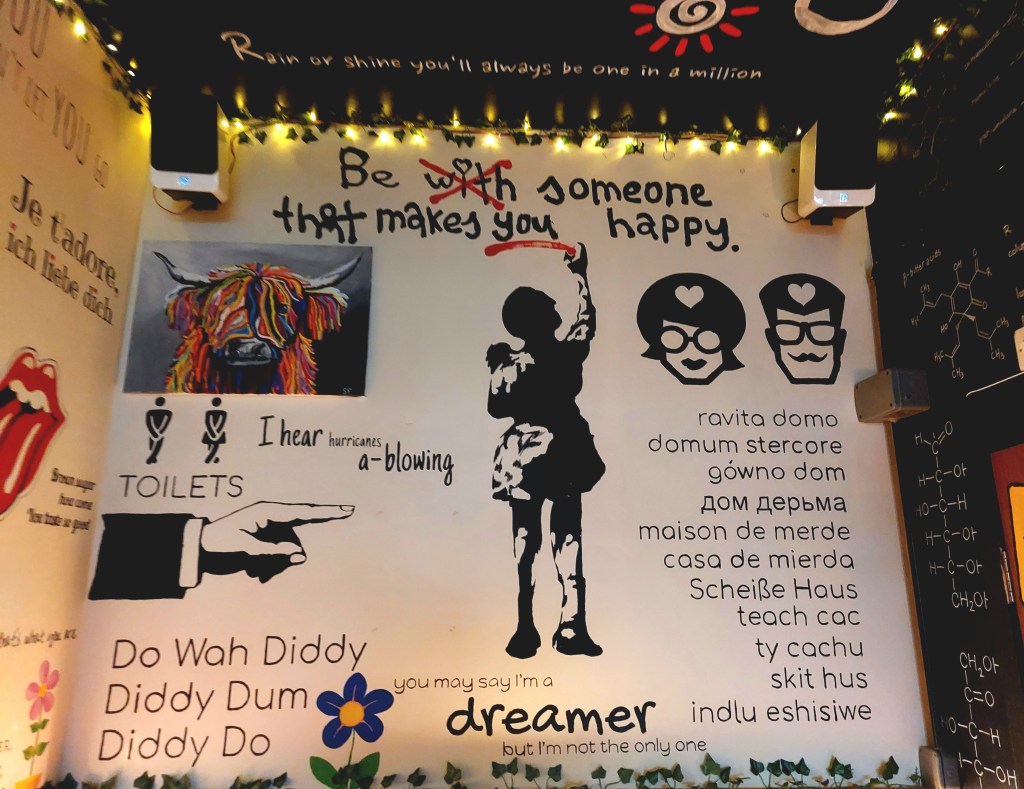 YOU
LET YOU
GO
Rain or shine you'll always be one in a million
Je t'adore,
ich liebe dich
Be with someone
that makes you happy.
I hear hurricanes
a-blowing
TOILETS
Brown sugar
how come
you taste so good
that's what you are
Do Wah Diddy
Diddy Dum
Diddy Do
you may say I'm a
dreamer
but I'm not the only one
ravita domo
domum stercore
gówno dom
дом дерьма
maison de merde
casa de mierda
Scheiße Haus
teach cac
ty cachu
skit hus
indlu eshisiwe
β-bitter acids
OH
O
R
H₃C
HO
CH₃
H C O
H-C-OH
HO-C-H
H-C-OH
H-C-OH
CH₂OH
CH₂OH
C=O
HO-C-H
H-C-OH